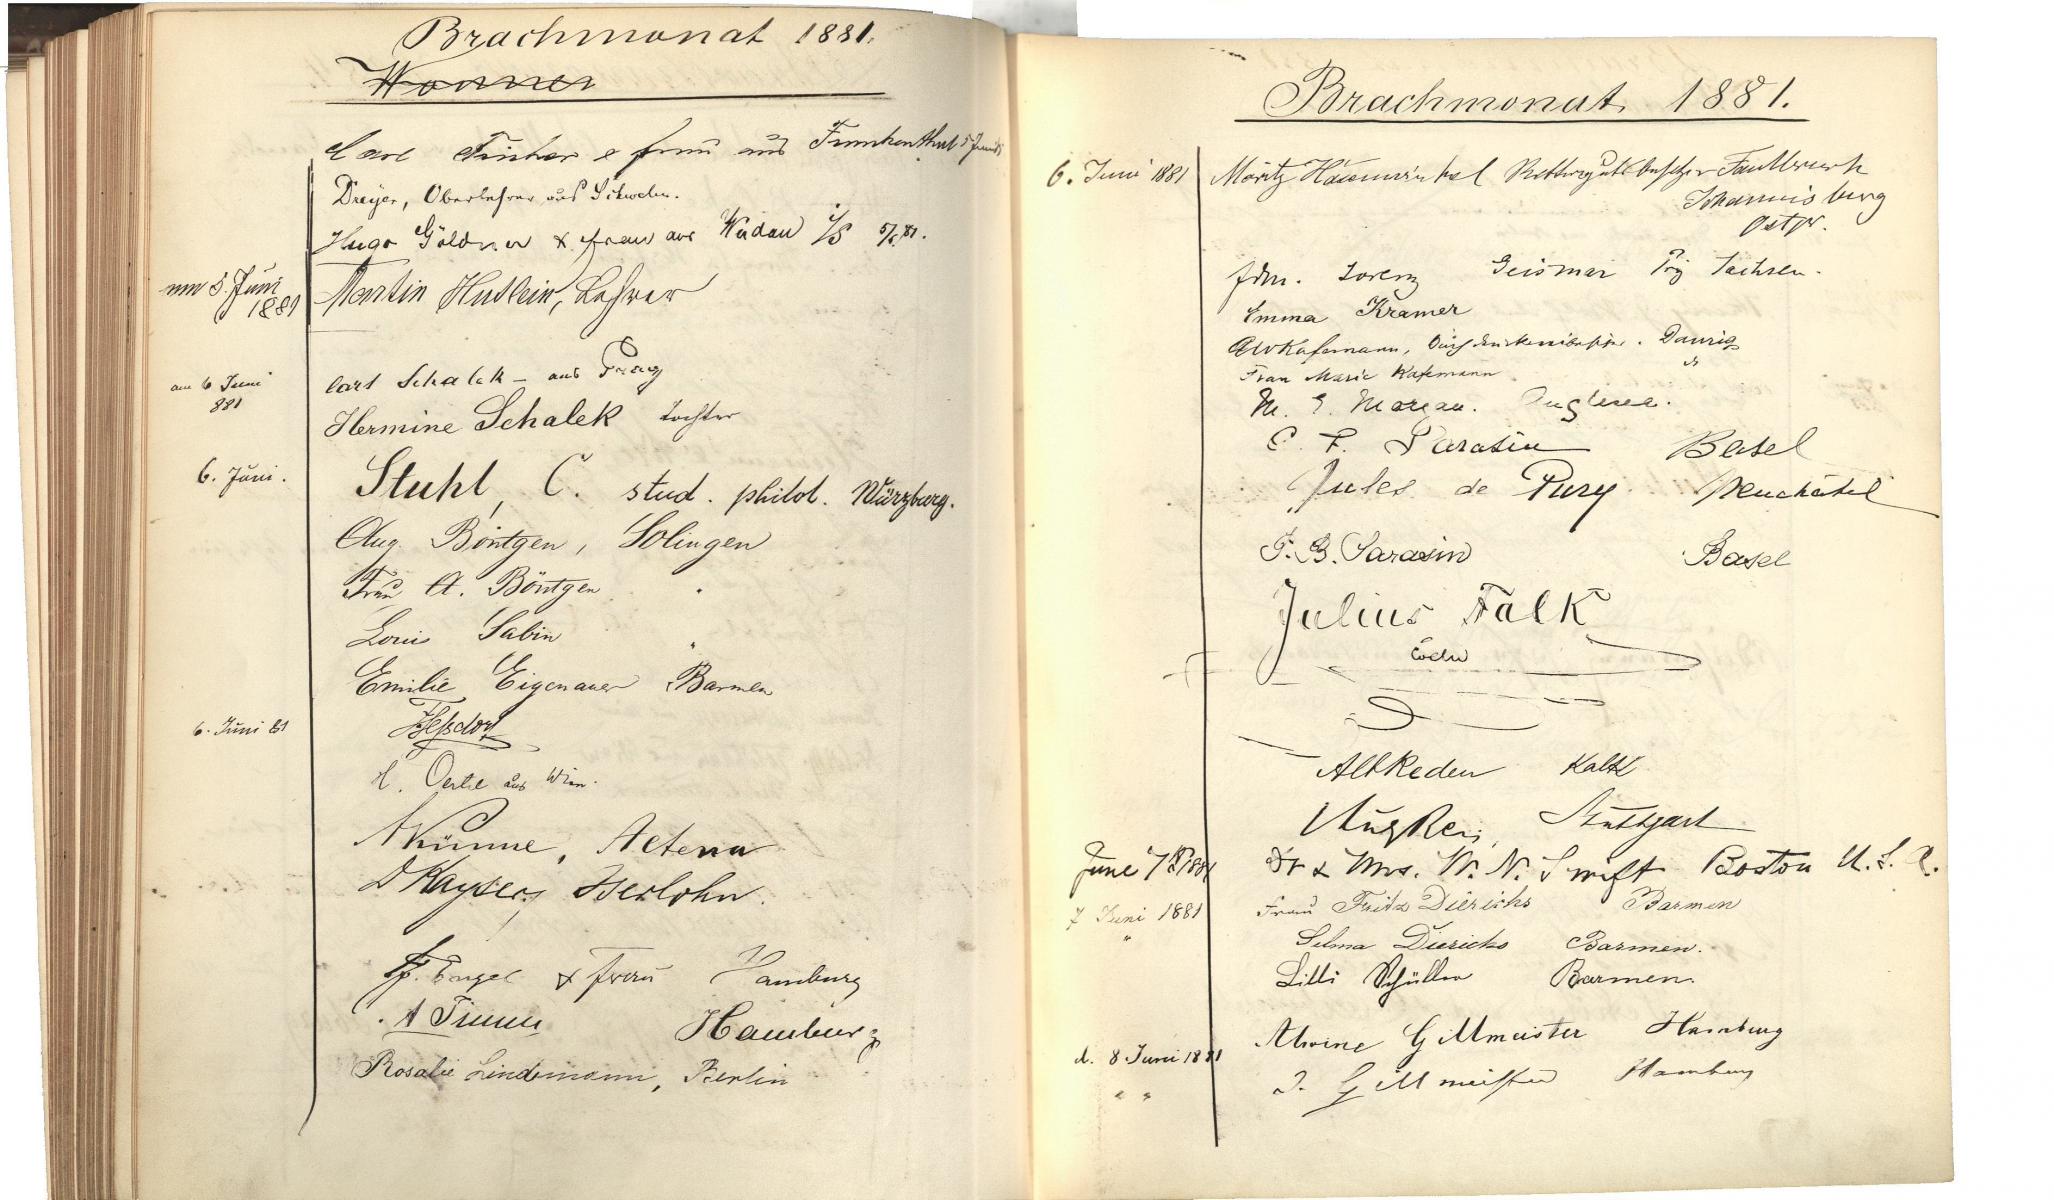 Brachmonat 1881.
Carl Fischer & frau aus Frankenthal 5 Juni
Dreyer, Oberlehrer aus
Hugo Göldner & frau aus 5/6 81.
am 5. Juni 1881 Martin Lehrer
am 6 Juni 881 Carl Schalek - aus Prag
Hermine Schalek tochter
6. Juni. Stuhl, C. stud. philol. Würzburg.
Aug. Böntgen, Solingen
Frau A. Böntgen "
Louis Sabin "
Emilie Eigenauer Barmen
6. Juni 81
H. Oertel aus Wien.
Künne, Altena
Kayser, Iserlohn.
Engel & Frau Hamburg
A Timm Hamburg
Rosalie Lindemann, Berlin
Brachmonat 1881.
6. Juni 1881 Moritz Rittergutsbesitzer
Johannisburg
Ostpr.
Lorenz Geismar Prz Sachsen.
Emma Kramer
AWKafemann, Buchdruckereibesitzer. Danzig
Frau Marie Kafemann "
M. E. Morgan. Angleterre.
C. F. Sarasin Basel
Jules de Pury Neuchâtel
F. B. Sarasin Basel
Julius Falk
Stuttgart
June 7th 1881 Dr & Mrs. W. N. Swift Boston U. S. A.
7 Juni 1881 Frau Fritz Dierichs Barmen
" Selma Dierichs Barmen.
Lilli Schüller Barmen.
Alwine Gillmeister Hamburg
d. 8 Juni 1881
" " J. Gillmeister Hamburg